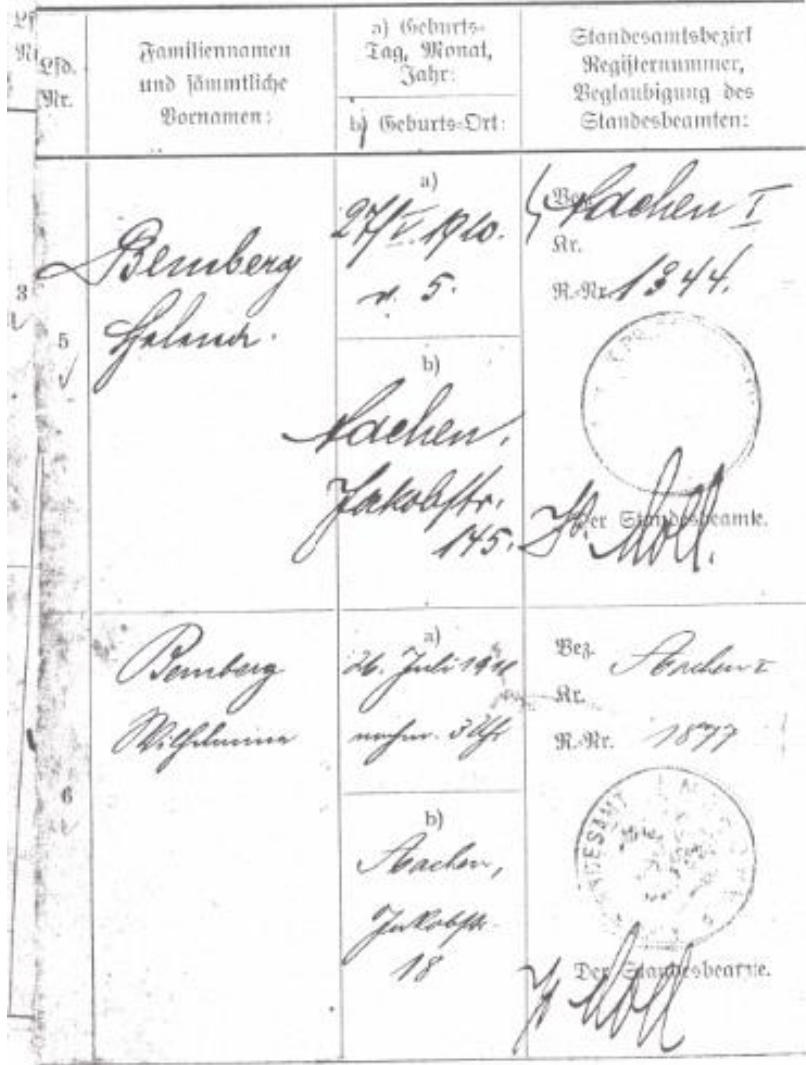 Lfd.
Nr.
Familiennamen
und sämmtliche
Vornamen:
a) Geburts-
Tag, Monat,
Jahr:
b) Geburts-Ort:
Standesamtsbezirk
Registernummer,
Beglaubigung des
Standesbeamten:
5
Bemberg
Helena.
a)
27/V. 1910.
n. 5.
b)
Aachen.
Jakobstr.
145.
Bez. Aachen I
Kr.
R.-Nr. 1344.
Der Standesbeamte.
Moll.
6
Bemberg
Wilhelmina
a)
26. Juli 1911
nachm. 3 Uhr
b)
Aachen,
Jakobstr.
18
Bez. Aachen I
Kr.
R.-Nr. 1877
Der Standesbeamte.
Moll